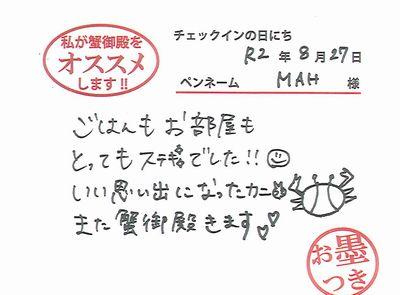 私が蟹御殿を
オススメ
します!!
チェックインの日にち
R2 年 8 月 27 日
ペンネーム MAH 様
ごはんもお部屋も
とってもステキでした!!
いい思い出になったカニ
また蟹御殿きます
お墨
つき